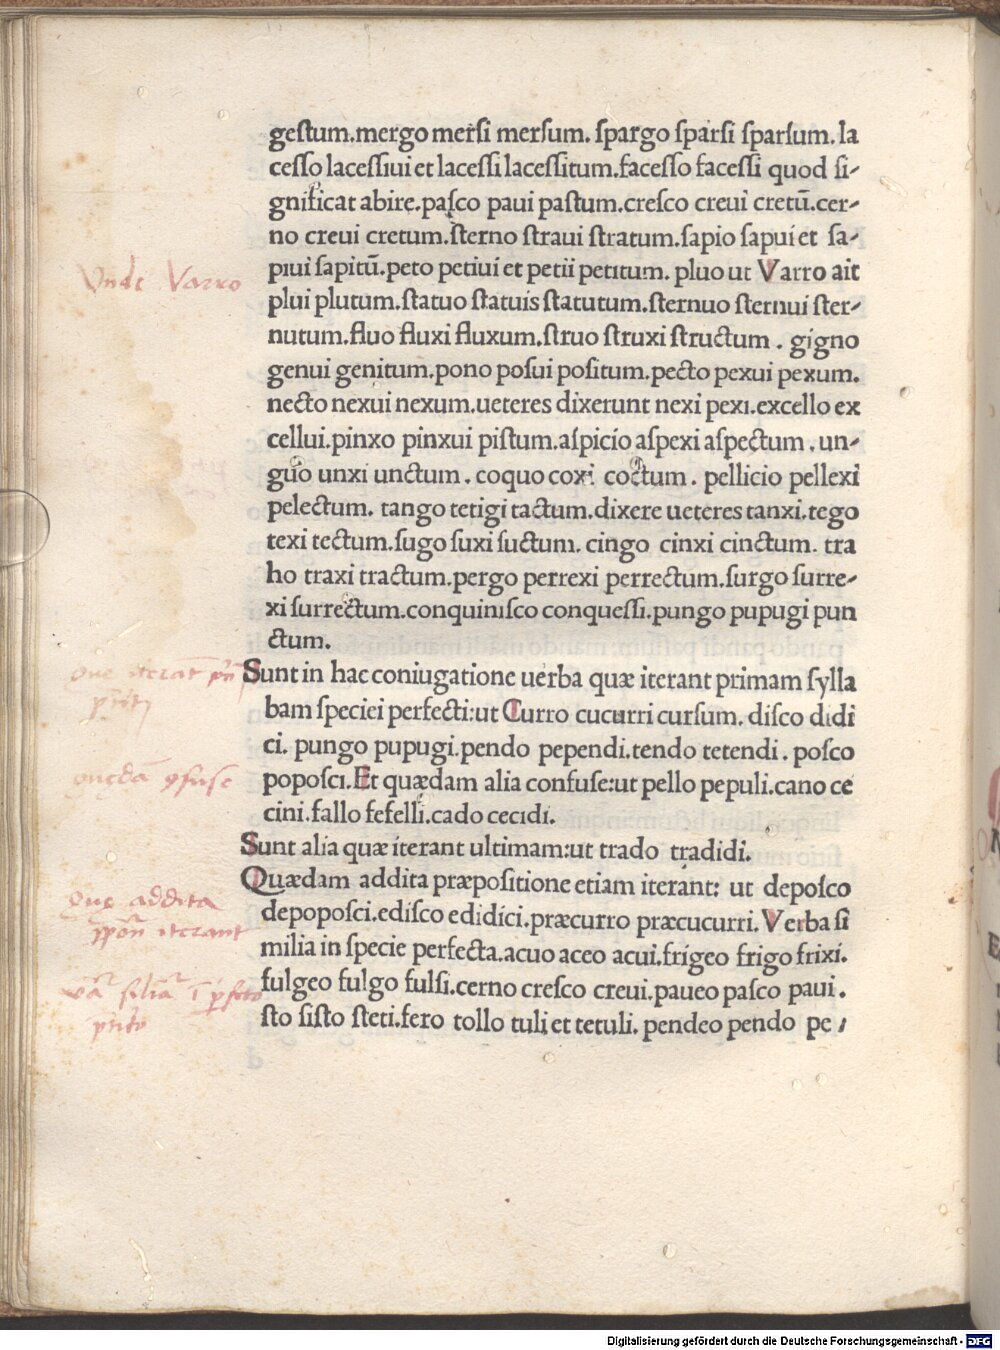 gestum.mergo mersi mersum. spargo sparsi sparsum. la
cesso lacessiui et lacessi lacessitum.facesso facessi quod si-
gnificat abire.pasco paui pastum.cresco creui cretū.cer-
no creui cretum.sterno straui stratum.sapio sapui et sa-
piui sapitū.peto petiui et petii petitum. pluo ut Varro ait
plui plutum.statuo statuis statutum.sternuo sternui ster-
nutum.fluo fluxi fluxum.struo struxi structum . gigno
genui genitum.pono posui positum.pecto pexui pexum.
necto nexui nexum.ueteres dixerunt nexi pexi.excello ex
cellui.pinxo pinxui pistum.aspicio aspexi aspectum . un-
guo unxi unctum . coquo coxi coctum . pellicio pellexi
pelectum. tango tetigi tactum.dixere ueteres tanxi.tego
texi tectum.sugo suxi suctum. cingo cinxi cinctum. tra
ho traxi tractum.pergo perrexi perrectum.surgo surre-
xi surrectum.conquinisco conquessi.pungo pupugi pun
ctum.
Sunt in hac coniugatione uerba quæ iterant primam sylla
bam speciei perfecti:ut Curro cucurri cursum. disco didi
ci. pungo pupugi.pendo pependi.tendo tetendi . posco
poposci.Et quædam alia confuse:ut pello pepuli.cano ce
cini.fallo fefelli.cado cecidi.
Sunt alia quæ iterant ultimam:ut trado tradidi.
Quædam addita præpositione etiam iterant: ut deposco
depoposci.edisco edidici.præcurro præcucurri. Verba si
milia in specie perfecta.acuo aceo acui.frigeo frigo frixi.
fulgeo fulgo fulsi.cerno cresco creui.paueo pasco paui .
sto sisto steti.fero tollo tuli et tetuli. pendeo pendo pe
Vnde Varro
que iterāt
quedā
Que addita
iterant
Digitalisierung gefördert durch die Deutsche Forschungsgemeinschaft - DFG